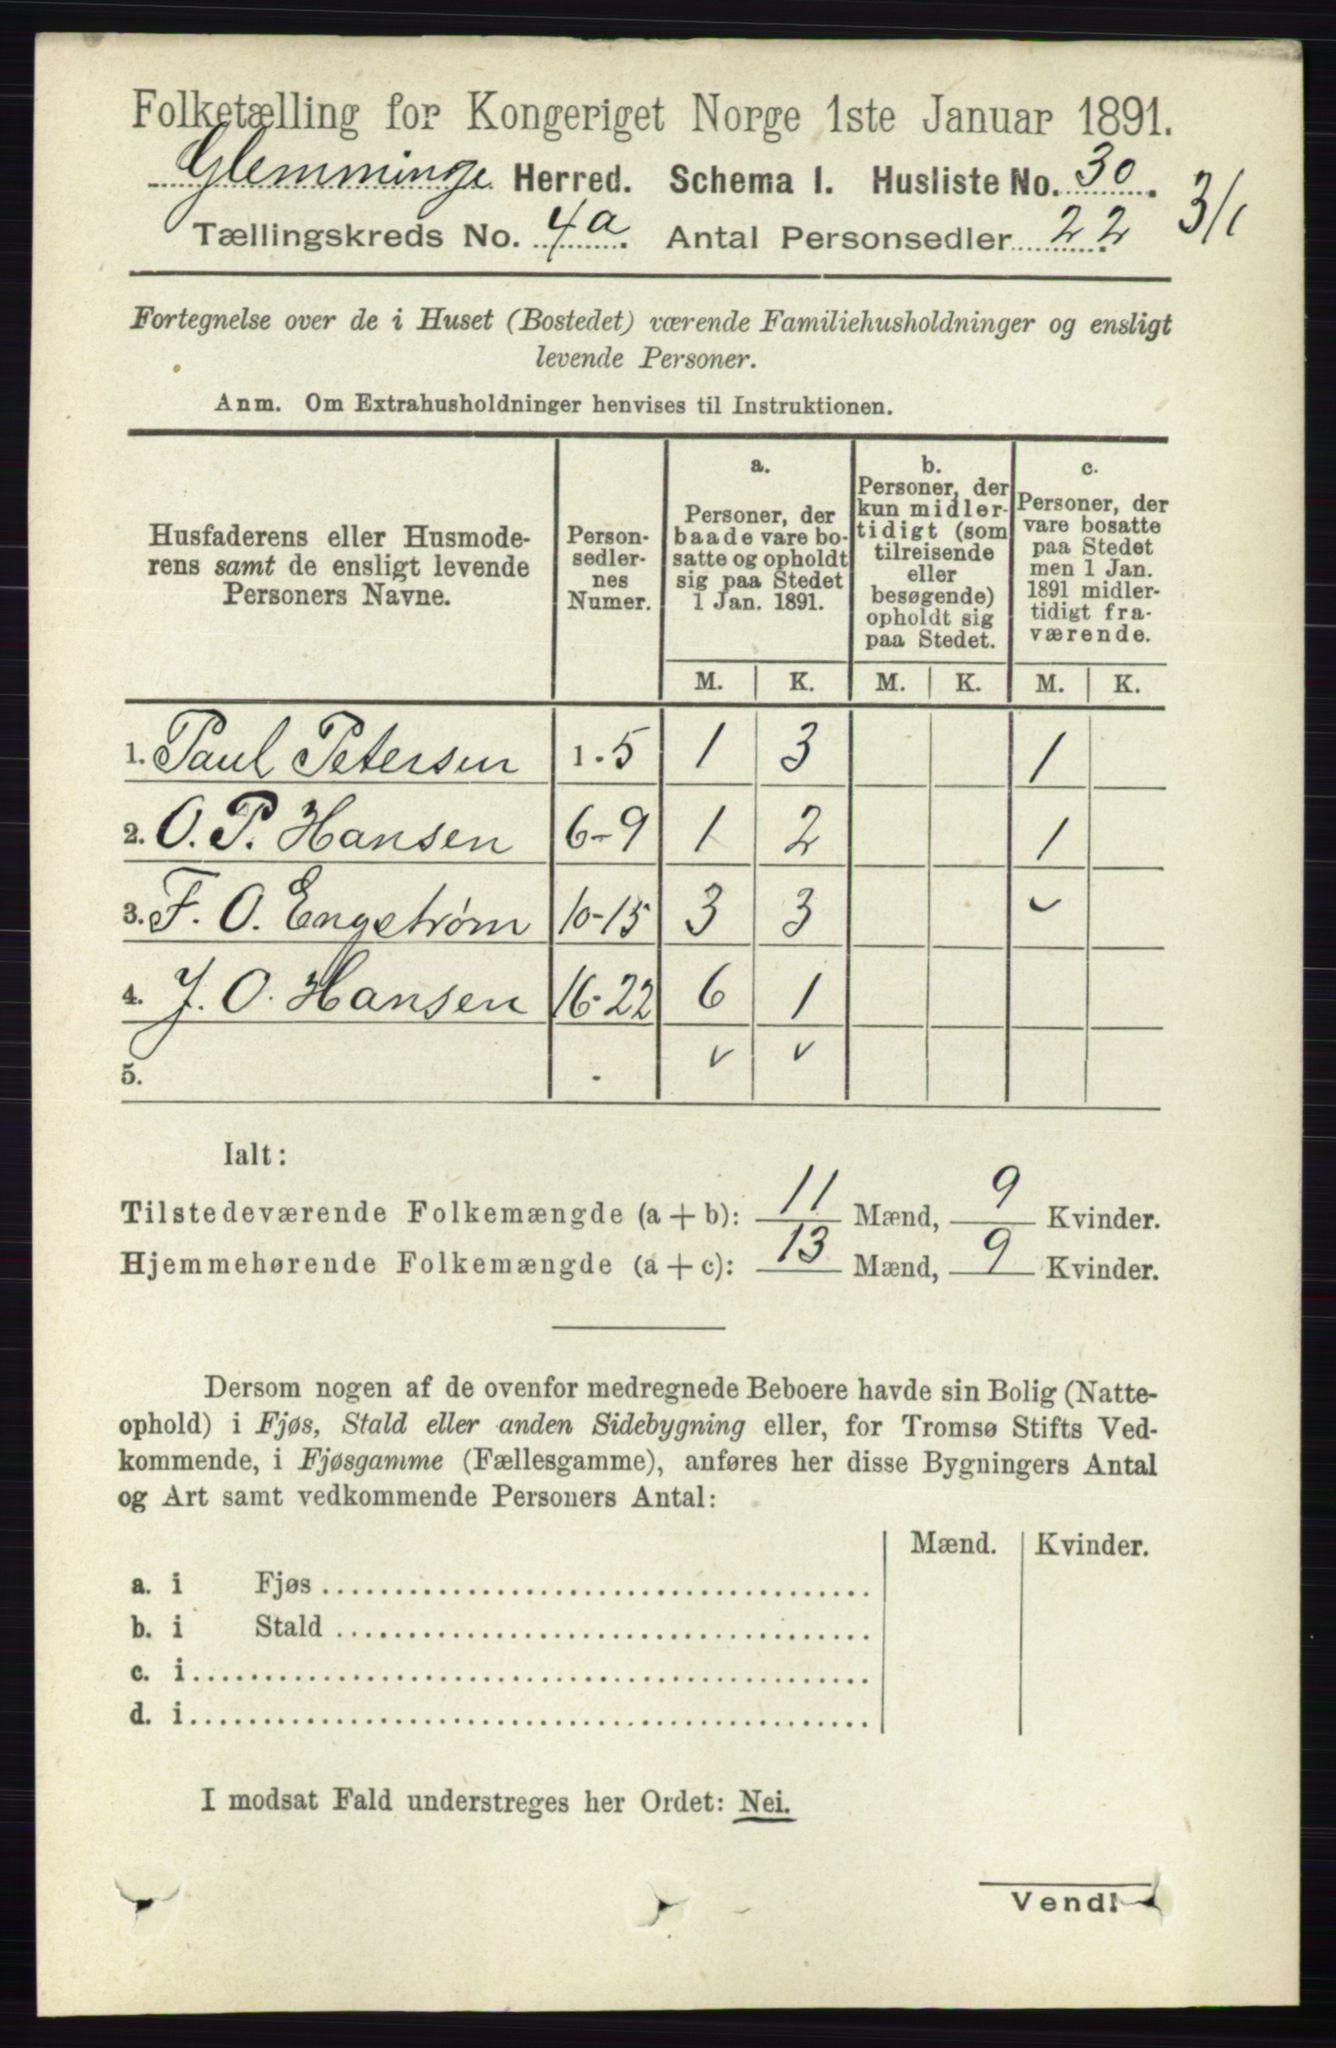 Folketælling for Kongeriget Norge 1ste Januar 1891.
Glemminge Herred. Schema I. Husliste No. 30.
3/1
Tællingskreds No. 4a. Antal Personsedler 22
Fortegnelse over de i Huset (Bostedet) værende Familiehusholdninger og ensligt
levende Personer.
Anm. Om Extrahusholdninger henvises til Instruktionen.
Husfaderens eller Husmode-
rens samt de ensligt levende
Personers Navne.
Person-
sedler-
nes
Numer.
a.
Personer, der
baade vare bo-
satte og opholdt
sig paa Stedet
1 Jan. 1891.
b.
Personer, der
kun midler-
tidigt (som
tilreisende
eller
besøgende)
opholdt sig
paa Stedet.
c.
Personer, der
vare bosatte
paa Stedet
men 1 Jan.
1891 midler-
tidigt fra-
værende.
M. K. M. K. M. K.
1. Paul Petersen 1-5 1 3 1
2. O. P. Hansen 6-9 1 2 1
3. F. O. Engstrøm 10-15 3 3
4. J. O. Hansen 16-22 6 1
5.
Ialt:
Tilstedeværende Folkemængde (a + b): 11 Mænd, 9 Kvinder.
Hjemmehørende Folkemængde (a + c): 13 Mænd, 9 Kvinder.
Dersom nogen af de ovenfor medregnede Beboere havde sin Bolig (Natte-
ophold) i Fjøs, Stald eller anden Sidebygning eller, for Tromsø Stifts Ved-
kommende, i Fjøsgamme (Fællesgamme), anføres her disse Bygningers Antal
og Art samt vedkommende Personers Antal:
Mænd. Kvinder.
a. i Fjøs
b. i Stald
c. i
d. i
I modsat Fald understreges her Ordet: Nei.
Vend!